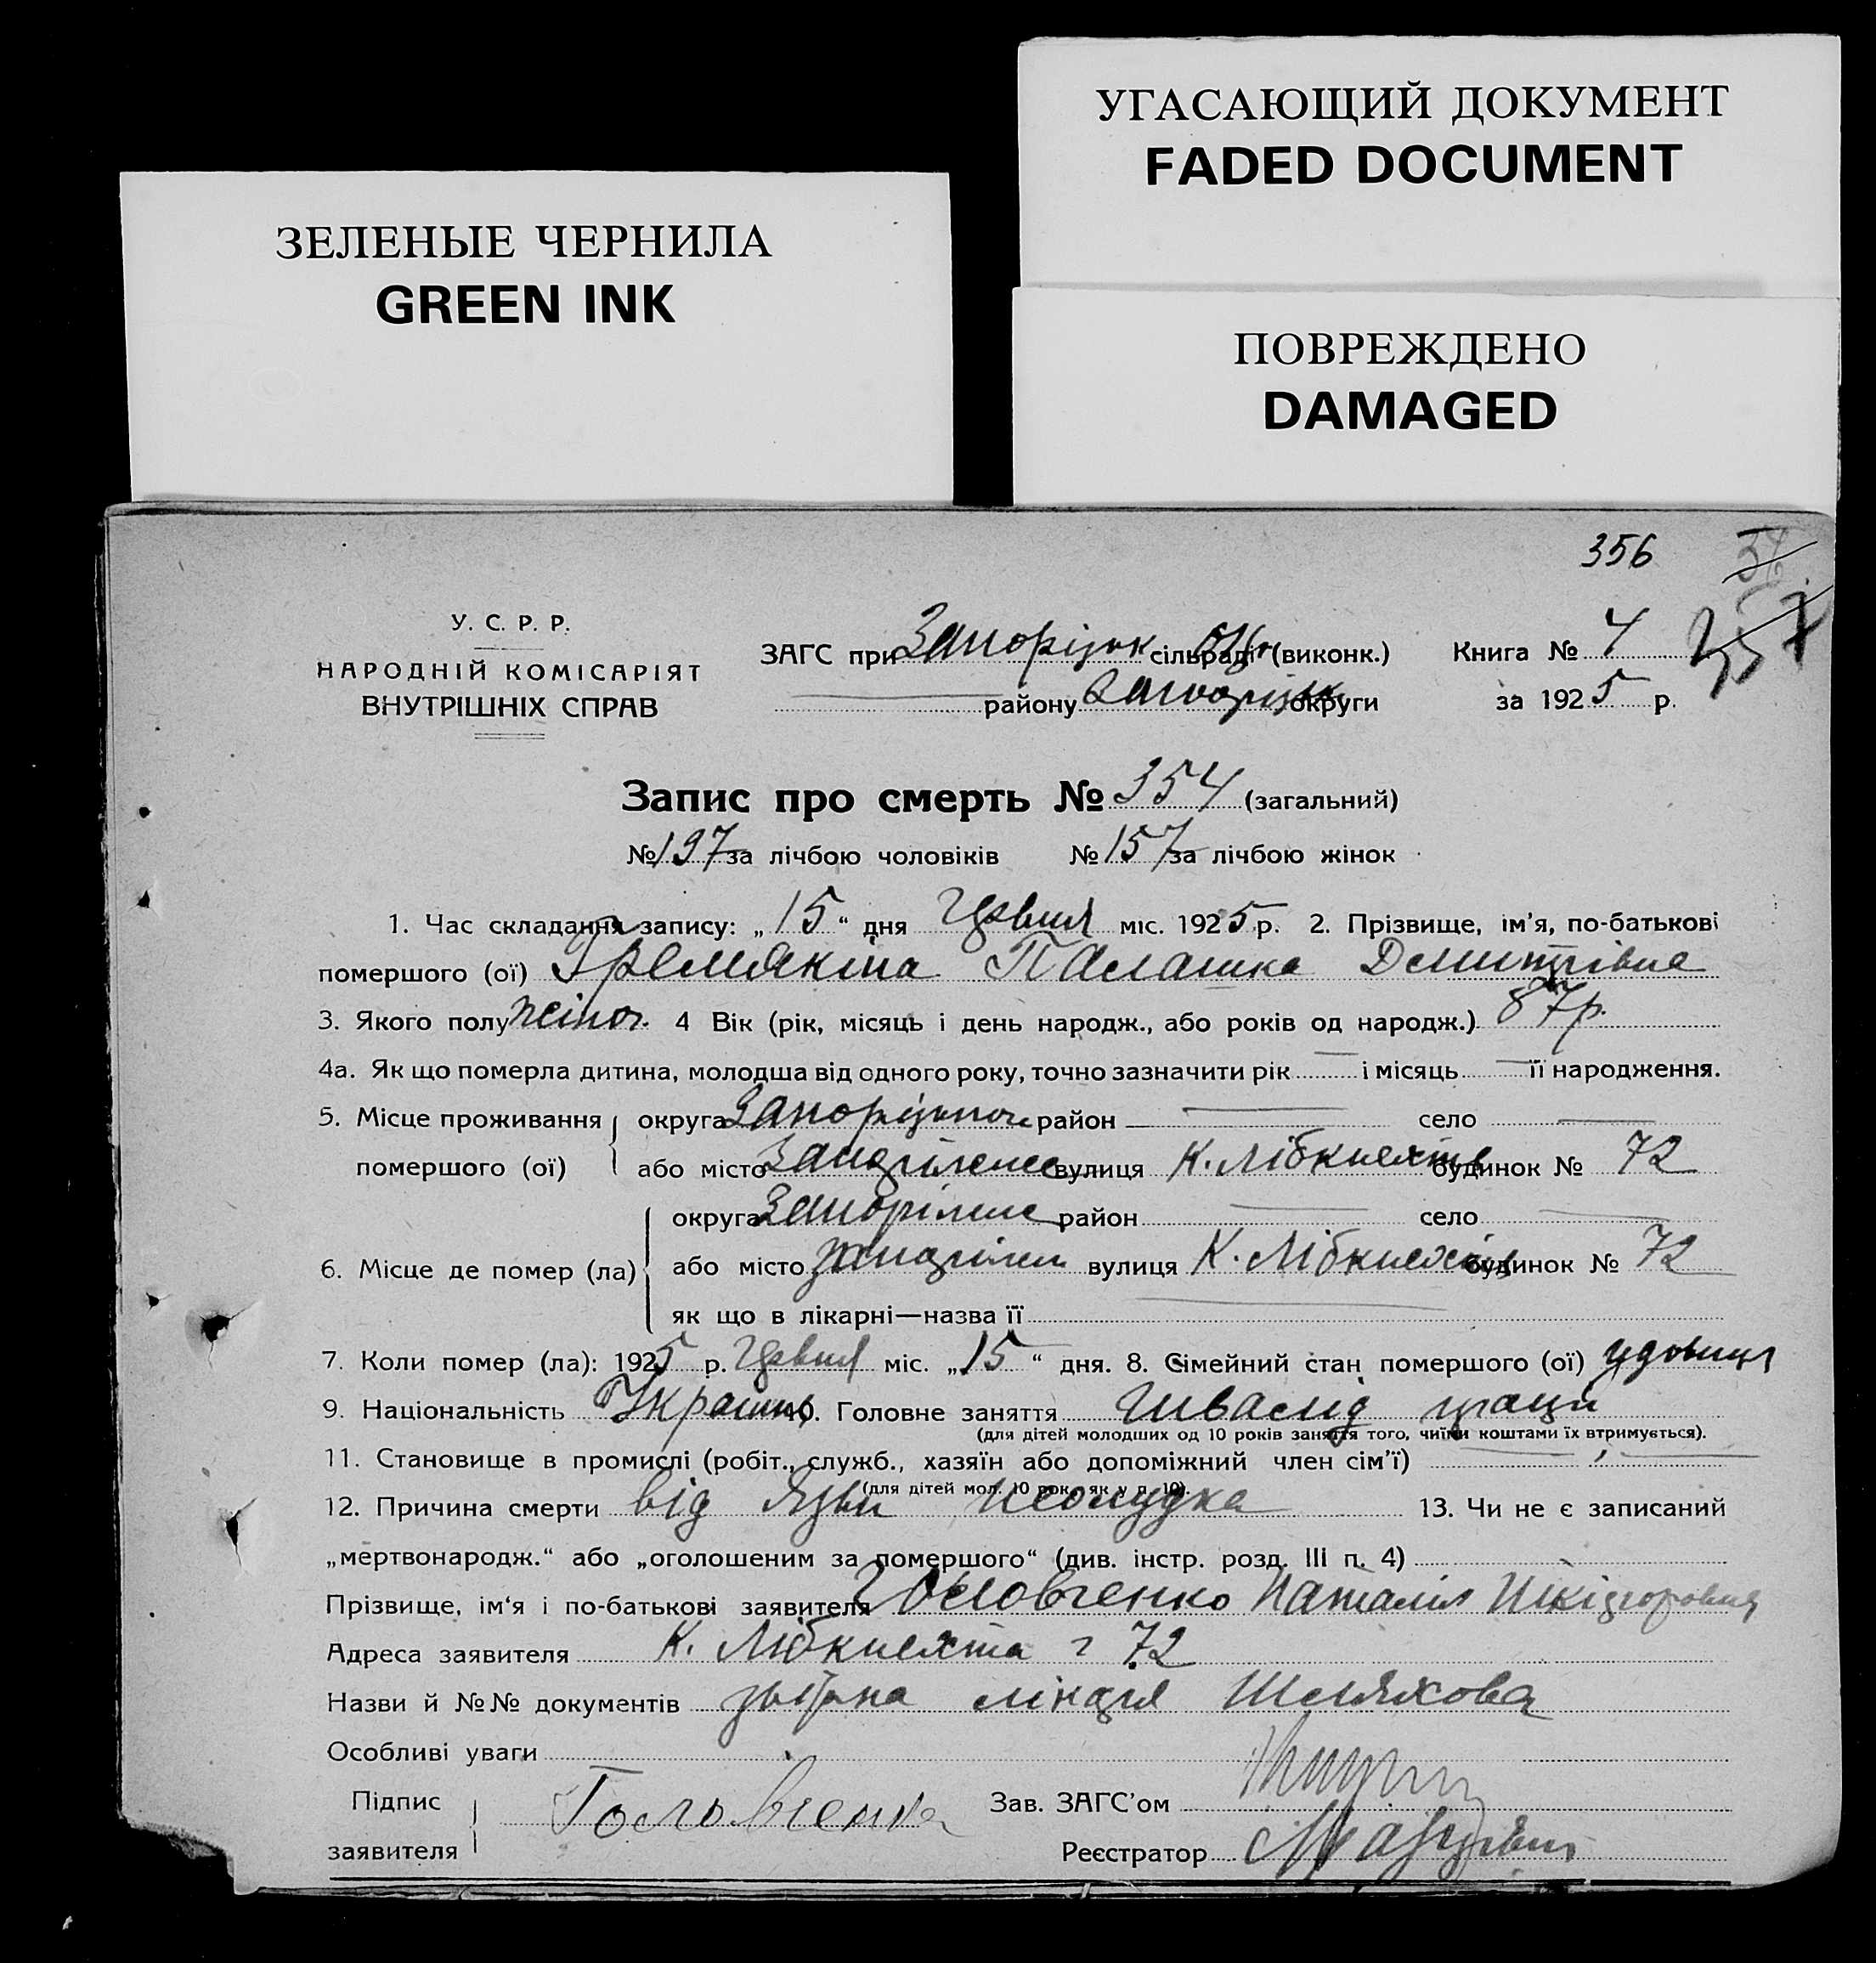 УГАСАЮЩИЙ ДОКУМЕНТ
FADED DOCUMENT
ЗЕЛЕНЫЕ ЧЕРНИЛА
GREEN INK
ПОВРЕЖДЕНО
DAMAGED
356
357
У. С. Р. Р.
НАРОДНІЙ КОМІСАРІЯТ
ВНУТРІШНІХ СПРАВ
ЗАГС при Запорізьк сільраді (виконк.) Книга № 4
району Запорізьк округи за 1925 р.
Запис про смерть № 354 (загальний)
№ 197 за лічбою чоловіків № 157 за лічбою жінок
1. Час складання запису: „15“ дня міс. 1925 р. 2. Прізвище, ім'я, по-батькові
помершого (ої) Гремякіна Палашка Дмитрівна
3. Якого полу жіноч. 4 Вік (рік, місяць і день народж., або років од народж.) 87 р.
4а. Як що померла дитина, молодша від одного року, точно зазначити рік — і місяць — її народження.
5. Місце проживання округа район — село —
помершого (ої) або місто вулиця К. Лібкнехта будинок № 72
округа район — село —
6. Місце де помер (ла) або місто вулиця К. Лібкнехта будинок № 72
як що в лікарні—назва її
7. Коли помер (ла): 1925 р. міс. „15“ дня. 8. Сімейний стан помершого (ої) удовиця
9. Національність Україн 10. Головне заняття
(для дітей молодших од 10 років заняття того, чиїми коштами їх втримується).
11. Становище в промислі (робіт., служб., хазяїн або допоміжний член сім'ї) —
(для дітей мол. 10 рок. як у п. 10).
12. Причина смерти від язви жолудка 13. Чи не є записаний
„мертвонародж.“ або „оголошеним за помершого“ (див. інстр. розд. III п. 4)
Прізвище, ім'я і по-батькові заявителя Головченко Наталія
Адреса заявителя К. Лібкнехта 72
Назви й №№ документів
Особливі уваги
Підпис
заявителя Головченко
Зав. ЗАГС'ом
Реєстратор